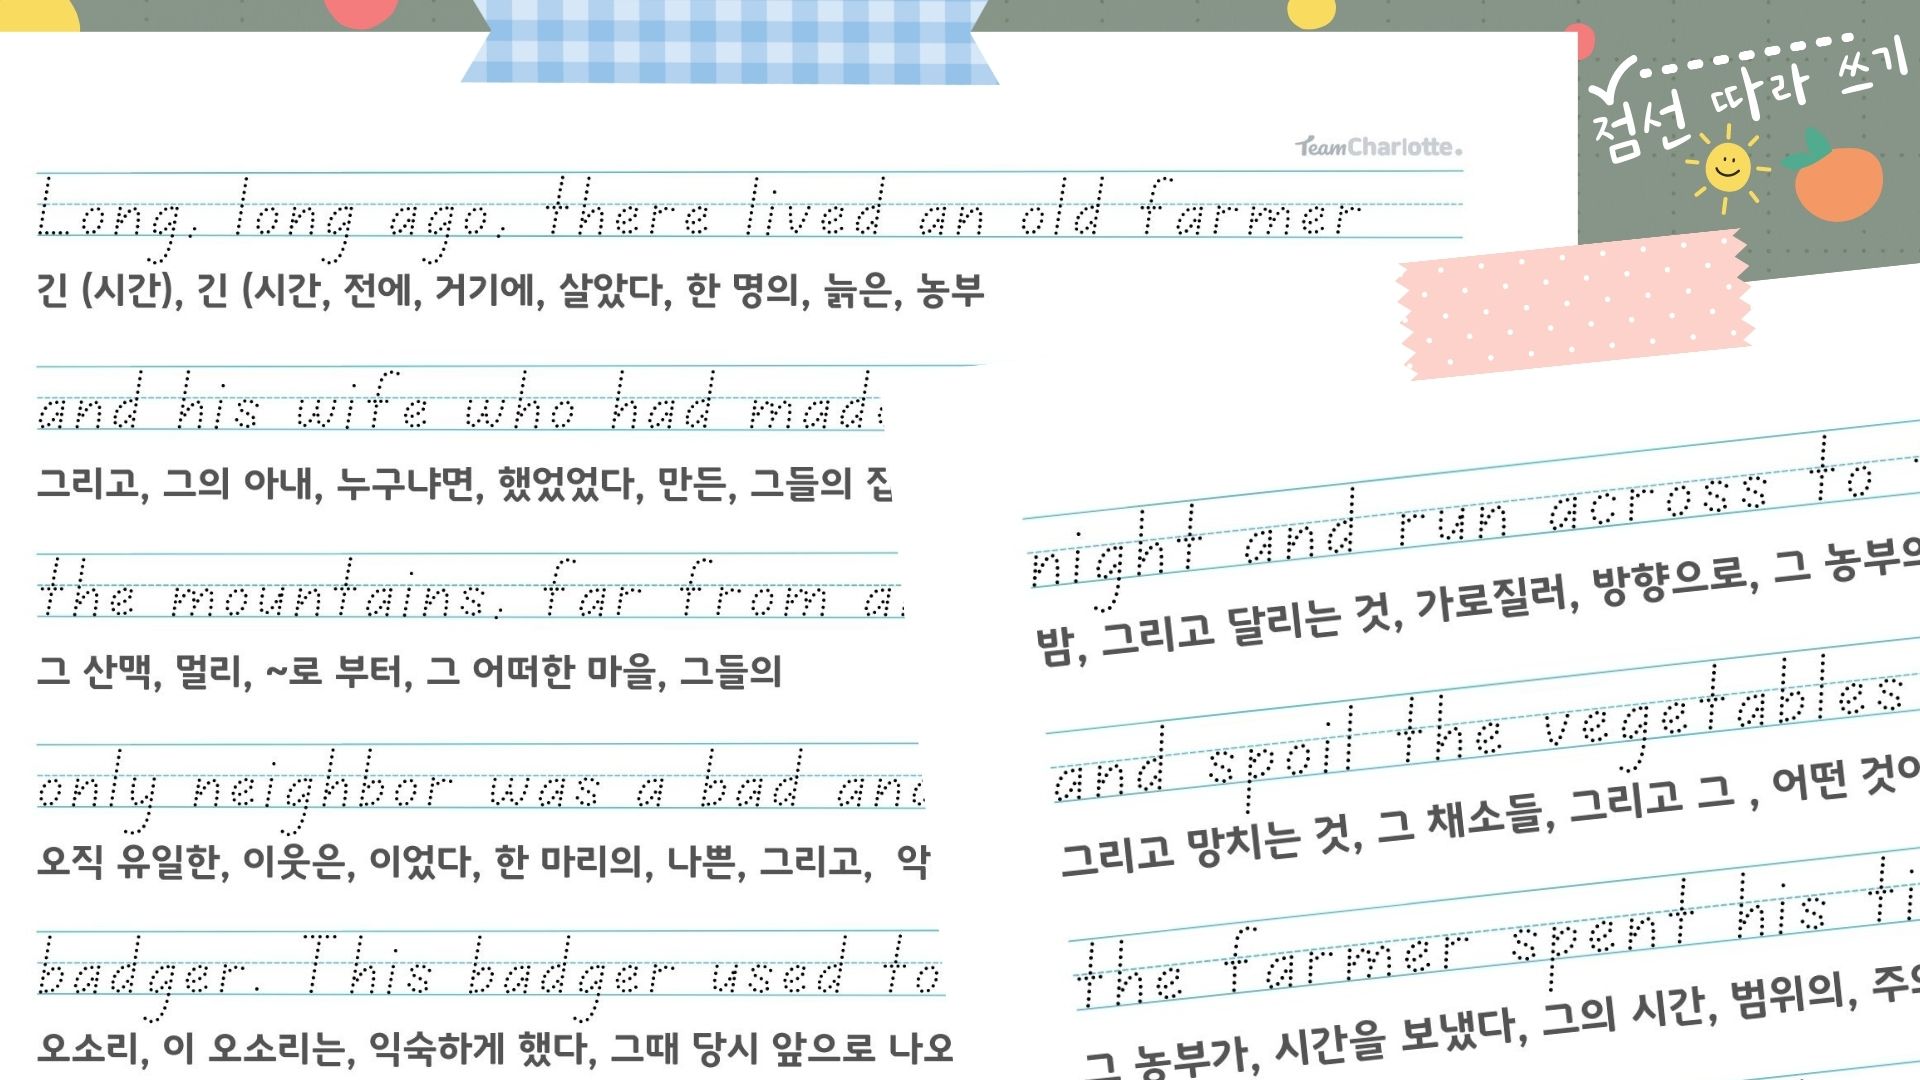 점선 따라 쓰기
TeamCharlotte.
Long, long ago, there lived an old farmer
긴 (시간), 긴 (시간, 전에, 거기에, 살았다, 한 명의, 늙은, 농부
and his wife who had mad
그리고, 그의 아내, 누구냐면, 했었었다, 만든, 그들의 집
the mountains, far from a
그 산맥, 멀리, ~로 부터, 그 어떠한 마을, 그들의
only neighbor was a bad and
오직 유일한, 이웃은, 이었다, 한 마리의, 나쁜, 그리고, 악
badger. This badger used to
오소리, 이 오소리는, 익숙하게 했다, 그때 당시 앞으로 나오
night and run across to
밤, 그리고 달리는 것, 가로질러, 방향으로, 그 농부의
and spoil the vegetables
그리고 망치는 것, 그 채소들, 그리고 그 , 어떤 것이
the farmer spent his ti
그 농부가, 시간을 보냈다, 그의 시간, 범위의, 주의